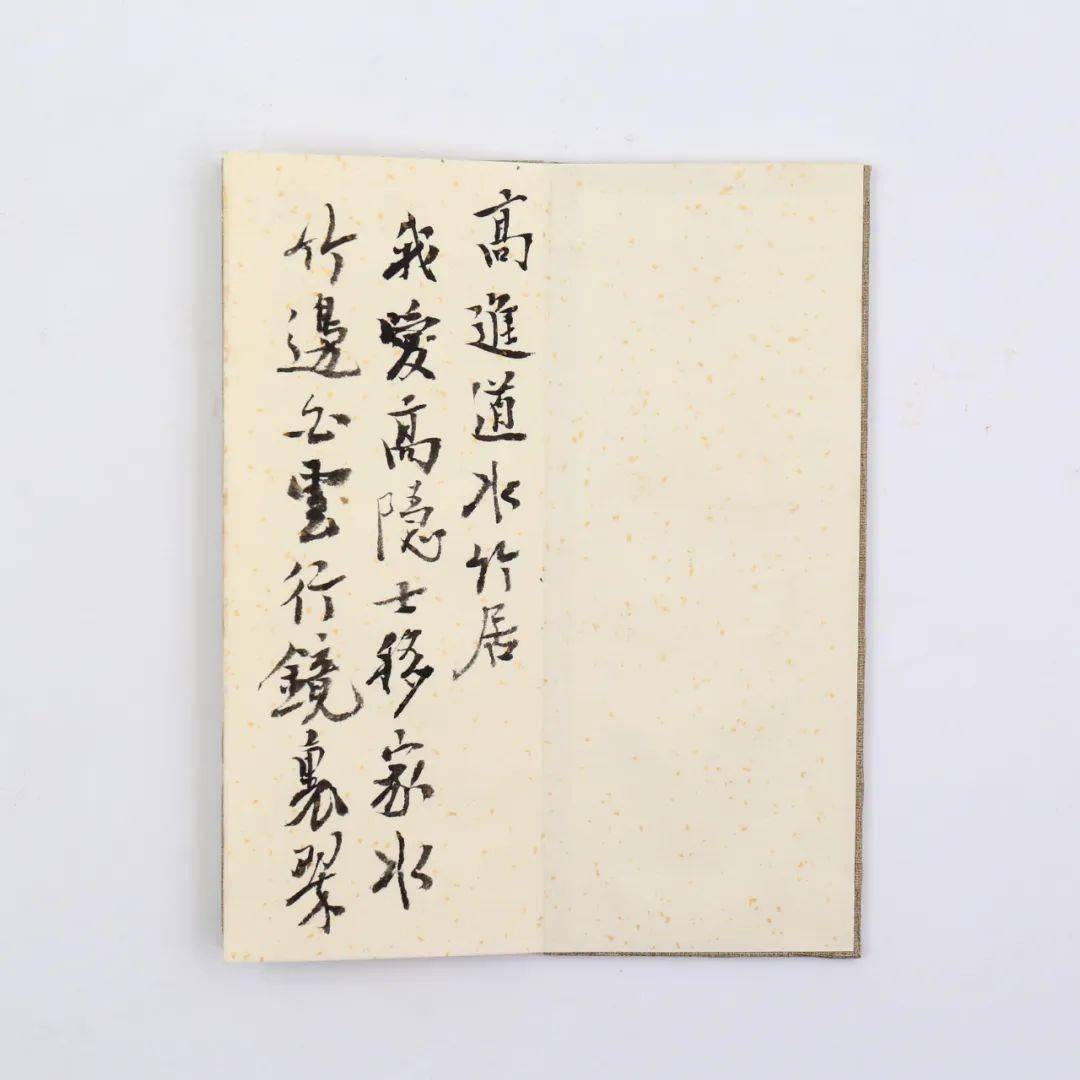 高進道水竹居
我愛高隱士移家水
竹邊白雲行鏡裏翠